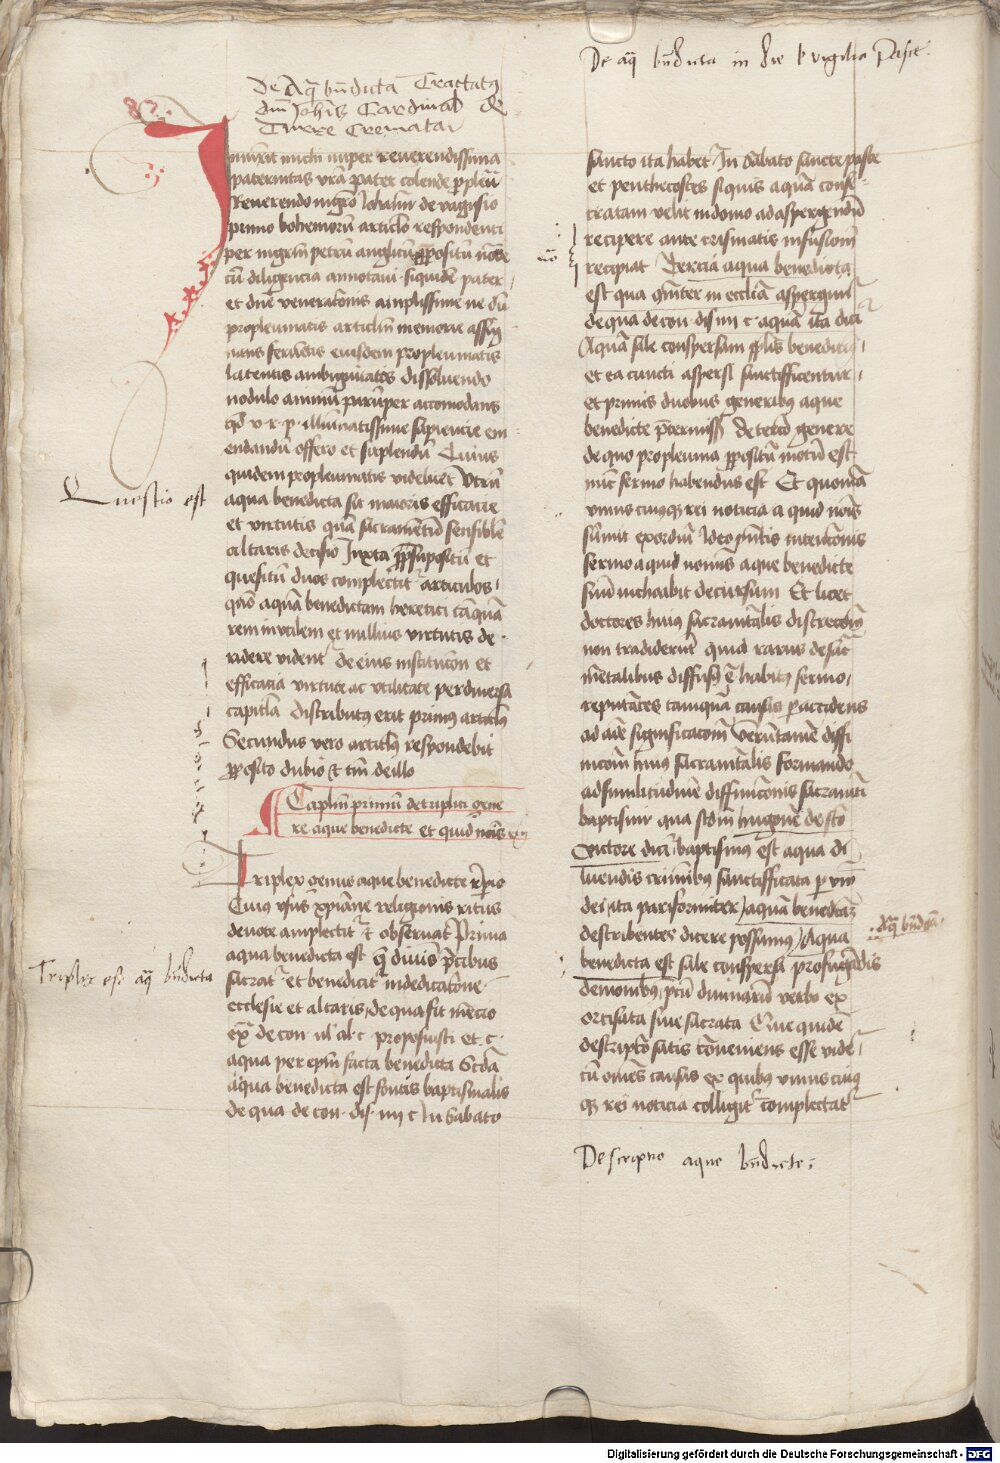 De Aq̄ bn̄dicta Tractatus
dn̄i Joh̄is Cardinal' de
Turre Cremata
De aq̄ bn̄dicta in die vigilia Pasce.
Iniunxit michi nuper reuerendissima
paternitas vr̄a pater colende
Reuerendo mgr̄o Joh̄ani de ragusio
primo bohemorū articl̄o respondenti
per mgrm̄ petrū anglicū p̄positū
cū diligencia annotaui siquidē pater
et dn̄e venerac̄onis amplissime ne dū
propleumatis articlm̄ memorie assig
nans eiusdem propleumatis
latentis ambiguitates dissoluendo
nodulo animū parūper accomodans
qd v. r. p. illūinatissime sapiencie em
endandū offero et suplendū Cuius
quidem propleumatis Vtrū
Questio est
aqua benedicta sit maioris efficacie
et virtutis quā sacramentū sensibile
altaris decisio Iuxta p̄supositū et
quesitū duos complectit' articulos
aquā benedictam heretici tāquā
rem invtilem et nullius virtutis de
ridere vident' de eius instituc̄on et
efficacia virtute ac vtilitate per diuersa
capitl̄a distributus erit primus articl̄us
Secundus vero articl̄us respondebit
p̄posito dubio et tm̄ de illo
Caplm̄ primū de triplici gene
re aque benedicte et quid nōis
Triplex genus aque benedicte
Cuius vsus xp̄iane religionis ritus
deuote amplectit' et obseruat Prima
Triplex est aq̄ bn̄dicta
aqua benedicta est q̄ diuīs p̄cibus
sacrat' et benedicit' in dedicatōne
ecclesie et altaris, de qua fit mēcio
ex̄ de con. proposuisti et c.
aqua per ep̄m facta benedicta Scd̄a
aqua benedicta est fontis baptismalis
de qua de con. dis. iiij c In Sabato
sancto ita habet' In sābato sancte pasce
et penthecostes siquis aquā conse
cratam velit in domo ad aspergendū
recipere ante crismatis infusionē
recipiat Tercia aqua benedicta
est qua gn̄iter in eccl̄ia aspergim'
de qua de con. dis. iij c. aquā ita dicit
Aquā sale conspersam pl̄is benedicim'
et ea cuncti aspersi sanctificentur
et primis duobus generibus aque
benedicte p̄termissis de tercio genere
de quo propleuma p̄positū motū est
nūc sermo habendus est Et quoniā
vnius cuiusque rei noticia a quid nōis
sumit exordiū Ideo pn̄tis intenc̄onis
sermo a quid nominis aque benedicte
suū inchoabit decursum Et licet
doctores huius sacramentalis discrec̄oem
non tradiderunt quia rarus de sac
mētalibus diffusus est habitus sermo
reputātes tamquā causis p accidens
ad aliē significatōm Verūtamē diffi
nic̄om huius sacramētalis formando
ad similitudinē diffinic̄onis sacramēti
baptismi qua scd̄m hugonē de scto
victore dicit baptismus est aqua di
luendis crimībus sanctificata p verbū
dei, ita pariformiter aquā benedictā
describentes dicere possumus Aqua
Aq̄ bn̄dicta
benedicta est sale conspersa pro fugādis
demonibus, diuinarū verbo ex
orcisata siue sacrata Que quidē
descriptō satis cōueniens esse vide
cū oīnes causas ex quibus vnius cuius
que rei noticia colligit' complectat'
Descriptio aque bn̄dicte
Digitalisierung gefördert durch die Deutsche Forschungsgemeinschaft - DFG